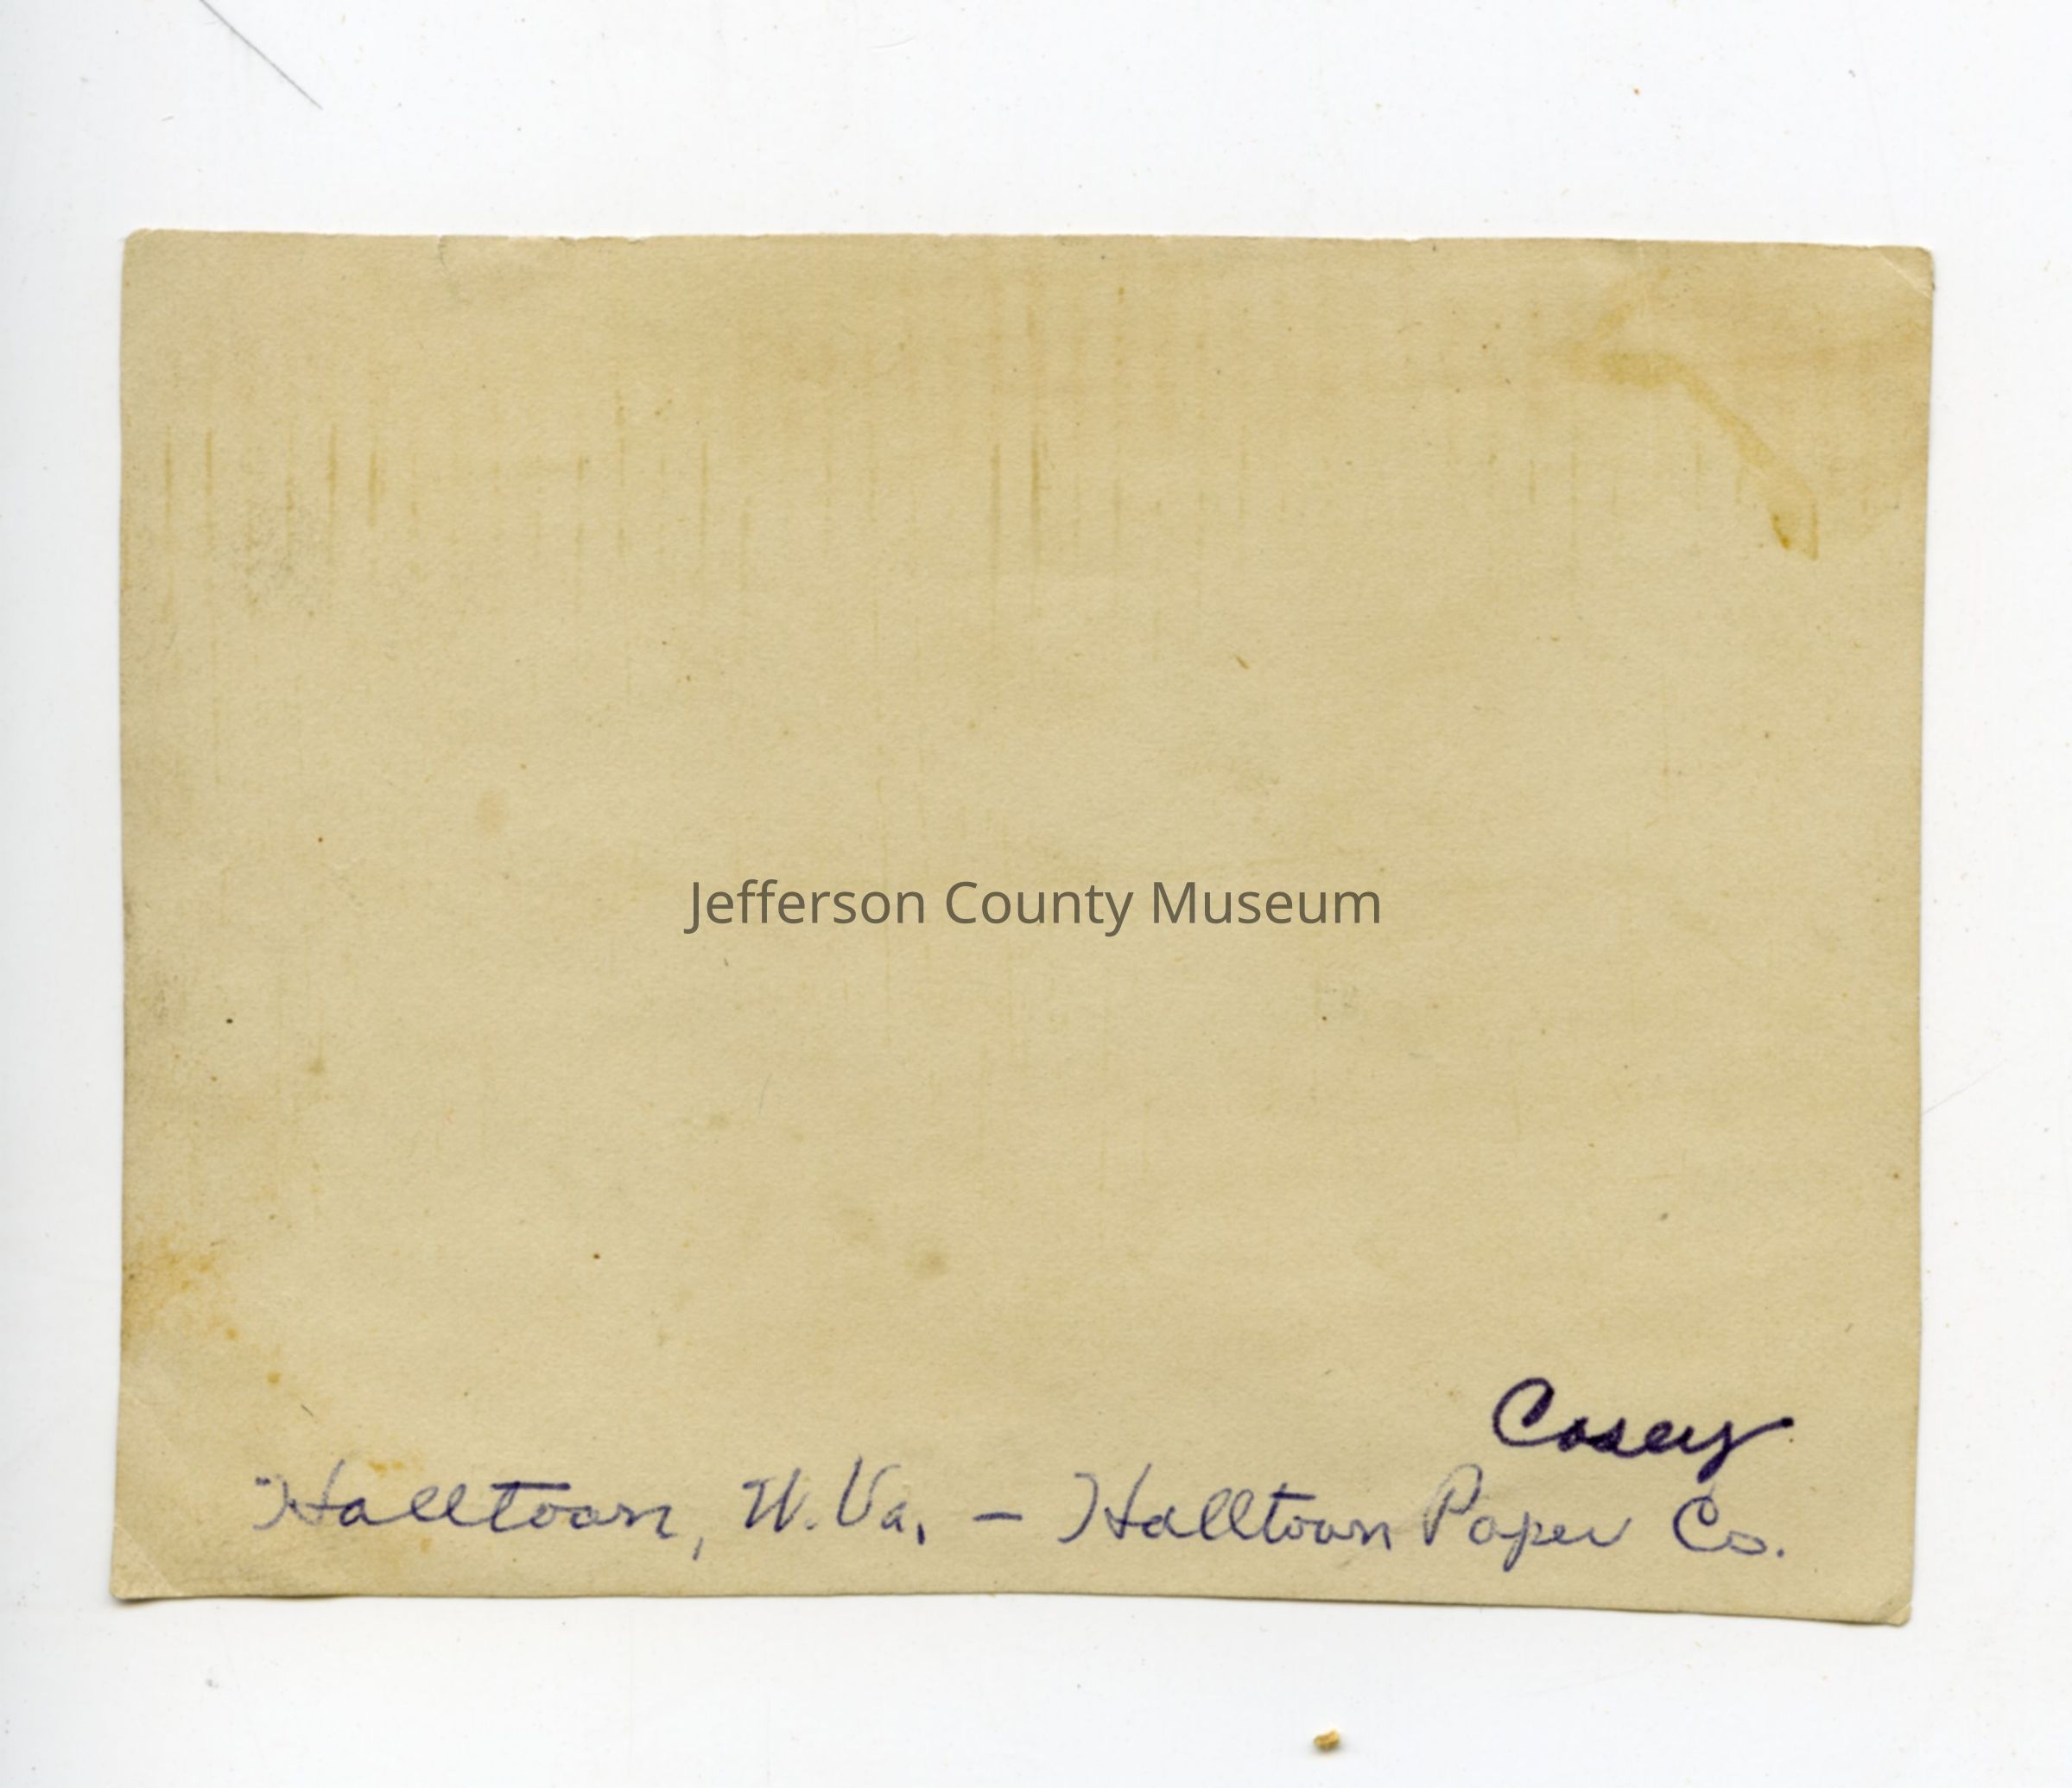 Jefferson County Museum
Casey
Halltown, W.Va. – Halltown Paper Co.